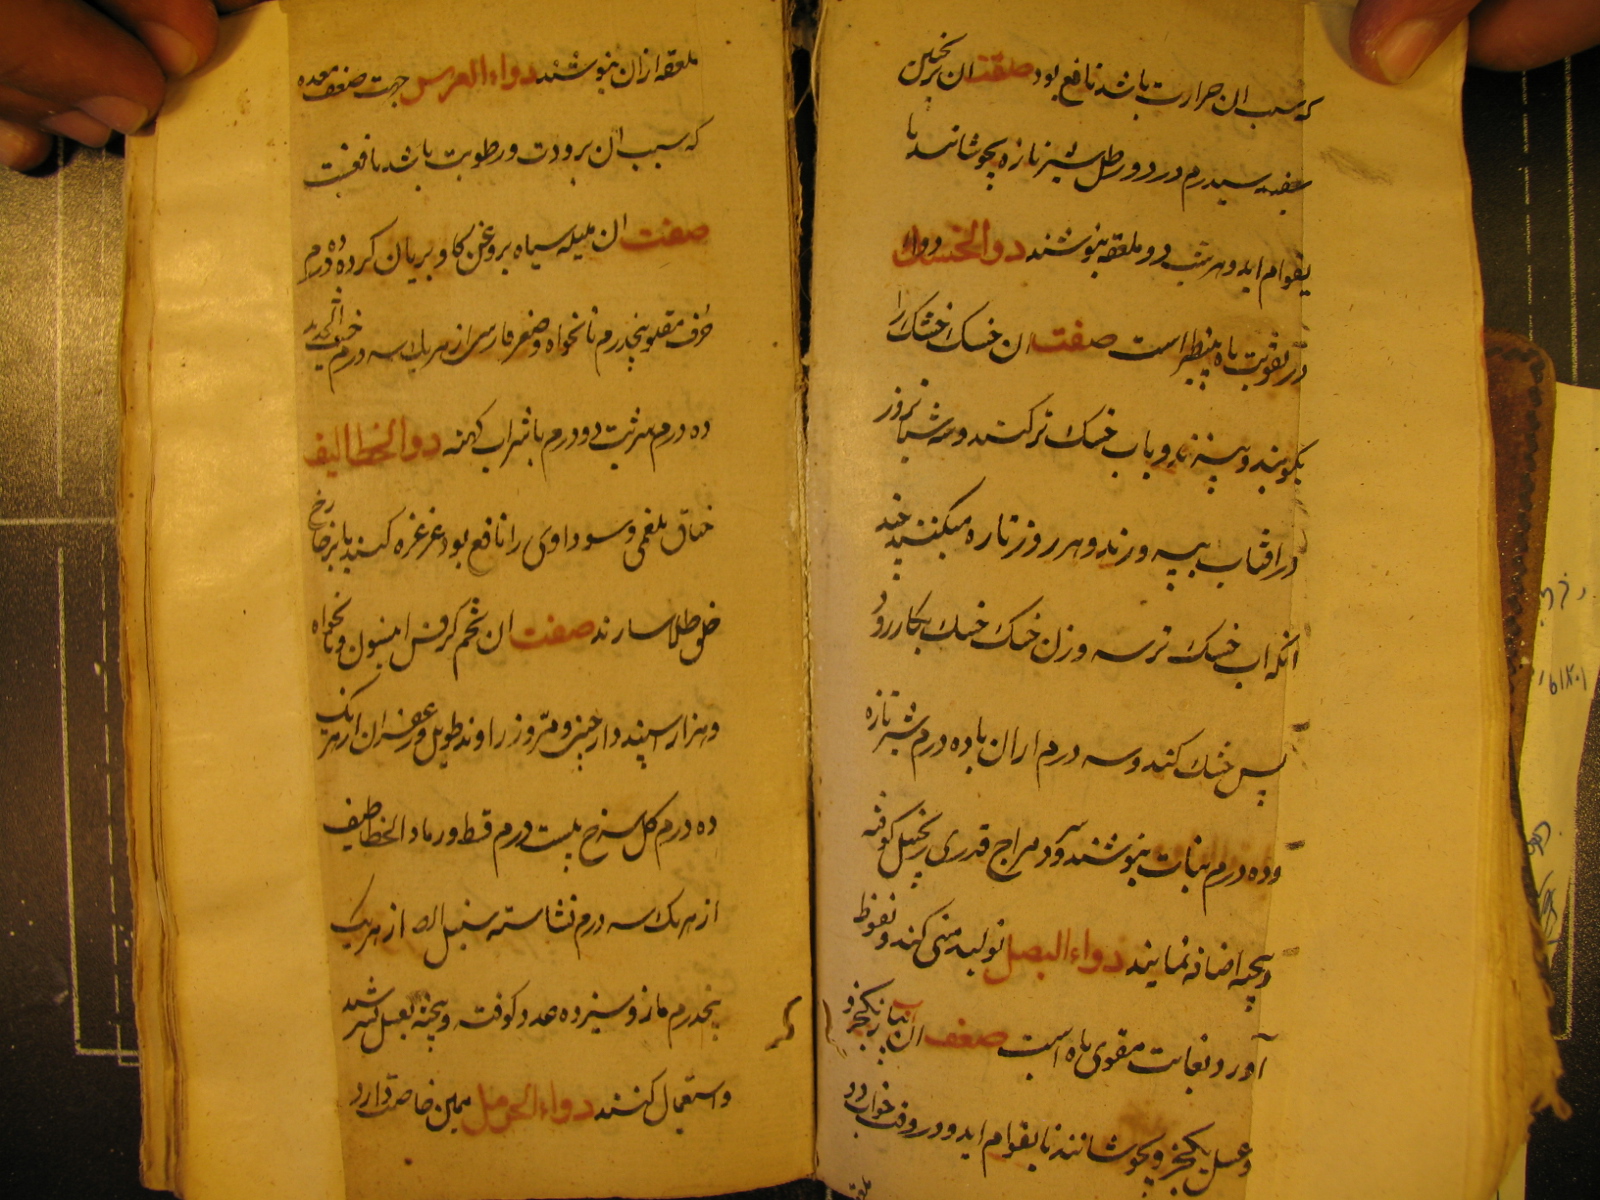 که سبب ان حرارت باشد نافع بود صفت ان ترنجبین
سفید سیدرم در دو رطل شیر تازه بجوشانند تا
بقوام اید و هر شب دو ملعقه بنوشند دواالخسک دوای
در تقویت باه بینظیر است صفت ان خسک خشک را
بکوبند و بپزند و باب خسک تر کنند و سه شبانروز
در افتاب بپرورند و هر روز تازه میکنند چند
انکه اب خسک تر سه وزن خسک خشک بکار رود
پس خشک کند و سه درم از ان با ده درم شیر تازه
و ده درم نبات بنوشند و در مزاج سرد قدری زنجبیل کوفته
و پخته اضافه نمایند دواء البصل تولید منی کند و نعوظ
آورد و بغایت مقوی باه است صفت ان آب پیاز یکجزو
و عسل یکجزو بجوشانند تا بقوام اید و در وقت خواب دو
ملعقه
ملعقه از ان بنوشند دواء العرس جهت ضعف معده
که سبب ان برودت و رطوبت باشد نافعست
صفت ان هلیله سیاه بروغن کاو بریان کرده ده درم
حرف مقلو پنجدرم نانخواه و صعتر فارسی از هر یک سه درم خبث الحدید
ده درم شربت دو درم با شراب کهنه دواالخطاطیف
خناق بلغمی و سوداوی را نافع بود غرغره کنند یا بر خارج
حلق طلا سازند صفت ان تخم کرفس انیسون و نانخواه
و هزار اسپند دارچینی و مر و زراوند طویل و زعفران از هر یک
ده درم کل سرخ بیست درم قسط و رماد الخطاطیف
از هر یک سه درم نشاسته سنبل از هر یک
پنجدرم مازو سیزده عدد کوفته و پخته بعسل سرشند
و استعمال کنند دواء الحرمل همین خاصیت دارد